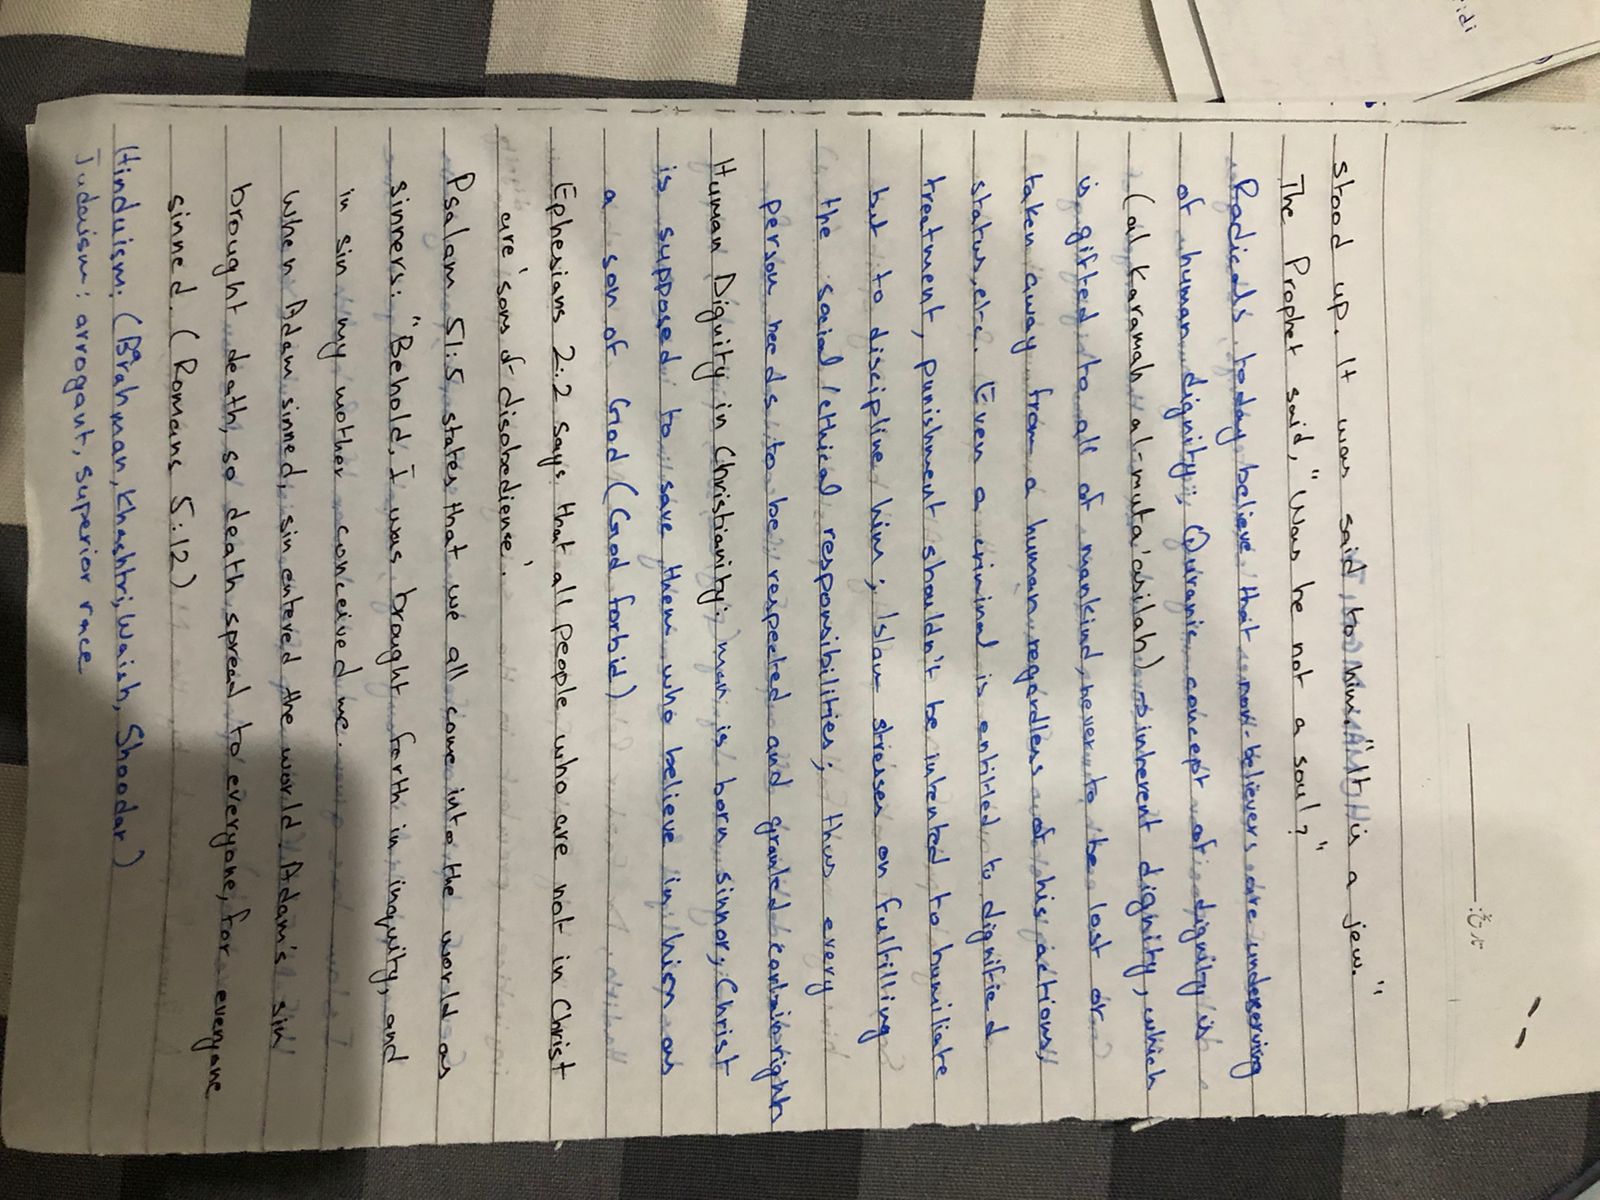 stood up. It was said to him, "It is a jew."
The Prophet said, "Was he not a soul?"
Radicals today believe that non-believers are underserving
of human dignity; Quranic concept of dignity is
(al karamah al-muta'asilah) → inherent dignity, which
is gifted to all of mankind, never to be lost or
taken away from a human regardless of his actions,
status, etc. Even a criminal is entitled to dignified
treatment, punishment shouldn't be intented to humiliate
but to discipline him; Islam stresses on fulfilling
the social/ethical responsibilities; thus every
person needs to be respected and granted certain rights
Human Dignity in Christianity: man is born sinner, Christ
is supposed to save them who believe in him as
a son of God (God forbid)
Ephesians 2:2 says that all people who are not in Christ
are 'sons of disobediense'.
Psalam 51:5 states that we all come into the world as
sinners: "Behold, I was brought forth in inquity, and
in sin my mother conceived me.
When Adam sinned, sin entered the world. Adam's sin
brought death, so death spread to everyone, for everyone
sinned. (Romans 5:12)
Hinduism: (Brahman, Khashtri, Waish, Shoodar)
Judaism: arrogant, superior race